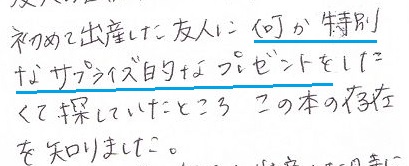 初めて出産した友人に 何か特別
なサプライズ的なプレゼントをした
くて探していたところ この本の存在
を知りました。